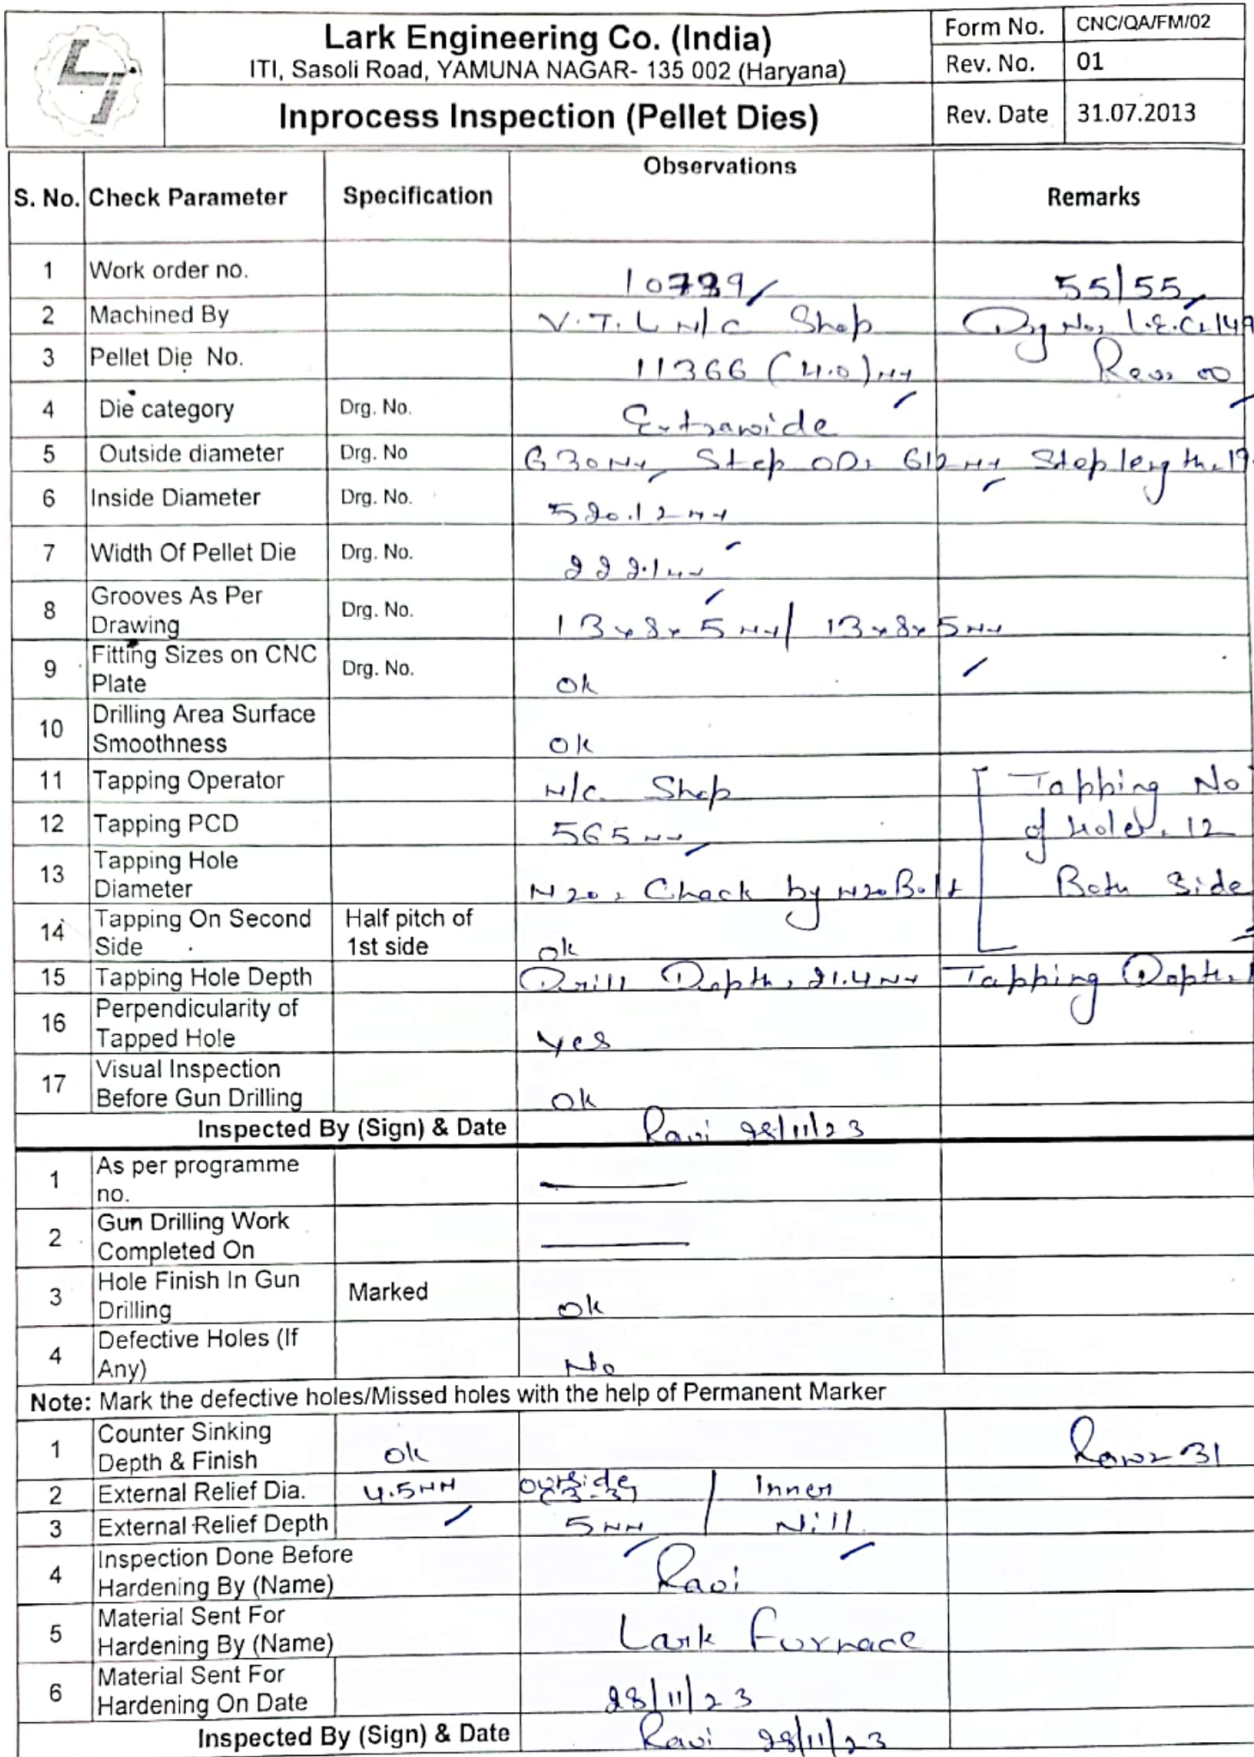 Lark Engineering Co. (India)
ITI, Sasoli Road, YAMUNA NAGAR- 135 002 (Haryana)
Inprocess Inspection (Pellet Dies)
Form No. CNC/QA/FM/02
Rev. No. 01
Rev. Date 31.07.2013
S. No. Check Parameter Specification Observations Remarks
1 Work order no. 55/55
2 Machined By V.T.L M/C Shop Drg No.
3 Pellet Die No. 11366 (4.0)MM Rev: 00
4 Die category Drg. No. Extrawide
5 Outside diameter Drg. No 630MM, Step OD: 612MM Step length
6 Inside Diameter Drg. No. 520.12MM
7 Width Of Pellet Die Drg. No. 222.1MM
8 Grooves As Per Drawing Drg. No. 13x8x5MM/ 13x8x5MM
9 Fitting Sizes on CNC Plate Drg. No. Ok
10 Drilling Area Surface Smoothness Ok
11 Tapping Operator M/C Shop Tapping No
12 Tapping PCD 565MM of holes. 12
13 Tapping Hole Diameter M20, Chack by M20 Bolt Both Side
14 Tapping On Second Side Half pitch of 1st side Ok
15 Tapping Hole Depth Drill Depth, 21.4MM Tapping Depth
16 Perpendicularity of Tapped Hole Yes
17 Visual Inspection Before Gun Drilling Ok
Inspected By (Sign) & Date Ravi 28/11/23
1 As per programme no.
2 Gun Drilling Work Completed On
3 Hole Finish In Gun Drilling Marked Ok
4 Defective Holes (If Any) No
Note: Mark the defective holes/Missed holes with the help of Permanent Marker
1 Counter Sinking Depth & Finish Ok
2 External Relief Dia. 4.5MM outside / Inner
3 External Relief Depth 5MM / Nill
4 Inspection Done Before Hardening By (Name) Ravi
5 Material Sent For Hardening By (Name) Lark Furnace
6 Material Sent For Hardening On Date 28/11/23
Inspected By (Sign) & Date Ravi 28/11/23